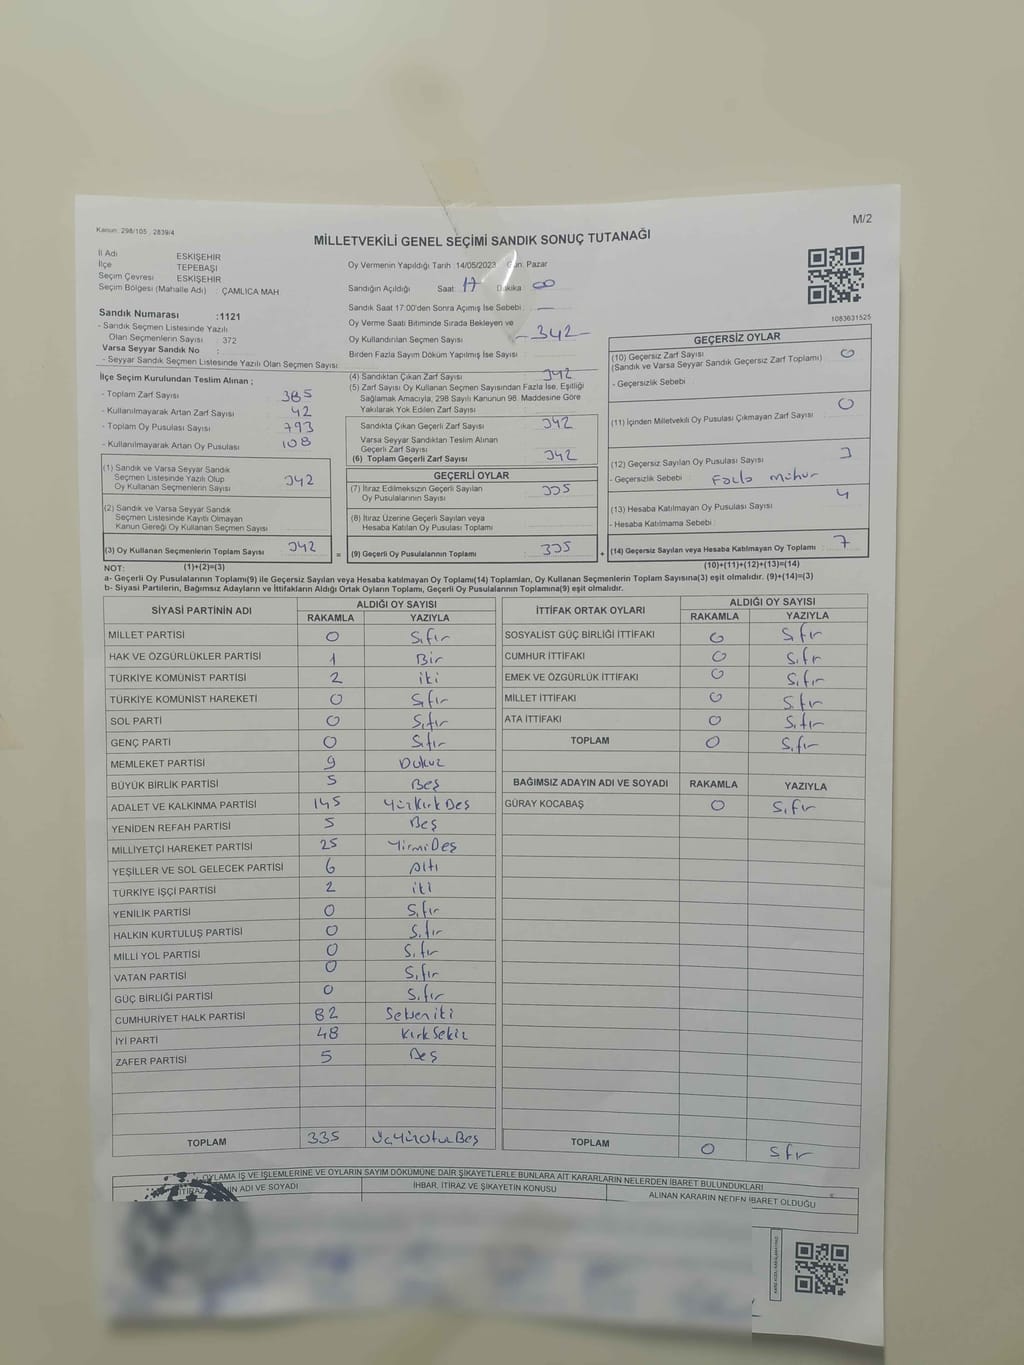 Kanun: 298/105 , 2839/4
M/2
MİLLETVEKİLİ GENEL SEÇİMİ SANDIK SONUÇ TUTANAĞI
İl Adı ESKİŞEHİR
İlçe TEPEBAŞI
Seçim Çevresi ESKİŞEHİR
Seçim Bölgesi (Mahalle Adı) : ÇAMLICA MAH
Sandık Numarası :1121
- Sandık Seçmen Listesinde Yazılı
Olan Seçmenlerin Sayısı : 372
Varsa Seyyar Sandık No :
- Seyyar Sandık Seçmen Listesinde Yazılı Olan Seçmen Sayısı :
Oy Vermenin Yapıldığı Tarih :14/05/2023 Gün: Pazar
Sandığın Açıldığı Saat 17 Dakika 00
Sandık Saat 17:00'den Sonra Açımış İse Sebebi : —
Oy Verme Saati Bitiminde Sırada Bekleyen ve
Oy Kullandırılan Seçmen Sayısı - 342 -
Birden Fazla Sayım Döküm Yapılmış İse Sayısı :
1083631525
İlçe Seçim Kurulundan Teslim Alınan ;
- Toplam Zarf Sayısı : 385
- Kullanılmayarak Artan Zarf Sayısı : 42
- Toplam Oy Pusulası Sayısı : 793
- Kullanılmayarak Artan Oy Pusulası : 108
(1) Sandık ve Varsa Seyyar Sandık
Seçmen Listesinde Yazılı Olup
Oy Kullanan Seçmenlerin Sayısı 342
(2) Sandık ve Varsa Seyyar Sandık
Seçmen Listesinde Kayıtlı Olmayan
Kanun Gereği Oy Kullanan Seçmen Sayısı :
(3) Oy Kullanan Seçmenlerin Toplam Sayısı 342 =
(4) Sandıktan Çıkan Zarf Sayısı 342
(5) Zarf Sayısı Oy Kullanan Seçmen Sayısından Fazla İse, Eşitliği
Sağlamak Amacıyla; 298 Sayılı Kanunun 98. Maddesine Göre
Yakılarak Yok Edilen Zarf Sayısı :
Sandıkta Çıkan Geçerli Zarf Sayısı 342
Varsa Seyyar Sandıktan Teslim Alınan
Geçerli Zarf Sayısı
(6) Toplam Geçerli Zarf Sayısı : 342
GEÇERLİ OYLAR
(7) İtiraz Edilmeksizin Geçerli Sayılan
Oy Pusulalarının Sayısı 335
(8) İtiraz Üzerine Geçerli Sayılan veya
Hesaba Katılan Oy Pusulası Toplamı
(9) Geçerli Oy Pusulalarının Toplamı : 335 +
GEÇERSİZ OYLAR
(10) Geçersiz Zarf Sayısı
(Sandık ve Varsa Seyyar Sandık Geçersiz Zarf Toplamı) 0
- Geçersizlik Sebebi :
(11) İçinden Milletvekili Oy Pusulası Çıkmayan Zarf Sayısı 0
(12) Geçersiz Sayılan Oy Pusulası Sayısı 3
- Geçersizlik Sebebi : Fazla mühür
(13) Hesaba Katılmayan Oy Pusulası Sayısı 4
- Hesaba Katılmama Sebebi :
(14) Geçersiz Sayılan veya Hesaba Katılmayan Oy Toplamı 7
NOT: (1)+(2)=(3)
(10)+(11)+(12)+(13)=(14)
a- Geçerli Oy Pusulalarının Toplamı(9) ile Geçersiz Sayılan veya Hesaba katılmayan Oy Toplamı(14) Toplamları, Oy Kullanan Seçmenlerin Toplam Sayısına(3) eşit olmalıdır. (9)+(14)=(3)
b- Siyasi Partilerin, Bağımsız Adayların ve İttifakların Aldığı Ortak Oyların Toplamı, Geçerli Oy Pusulalarının Toplamına(9) eşit olmalıdır.
SİYASİ PARTİNİN ADI ALDIĞI OY SAYISI
RAKAMLA YAZIYLA
MİLLET PARTİSİ 0 Sıfır
HAK VE ÖZGÜRLÜKLER PARTİSİ 1 Bir
TÜRKİYE KOMÜNİST PARTİSİ 2 iki
TÜRKİYE KOMÜNİST HAREKETİ 0 Sıfır
SOL PARTİ 0 Sıfır
GENÇ PARTİ 0 Sıfır
MEMLEKET PARTİSİ 9 Dokuz
BÜYÜK BİRLİK PARTİSİ 5 Beş
ADALET VE KALKINMA PARTİSİ 145 YüzKırkBeş
YENİDEN REFAH PARTİSİ 5 Beş
MİLLİYETÇİ HAREKET PARTİSİ 25 YirmiBeş
YEŞİLLER VE SOL GELECEK PARTİSİ 6 Altı
TÜRKİYE İŞÇİ PARTİSİ 2 iki
YENİLİK PARTİSİ 0 Sıfır
HALKIN KURTULUŞ PARTİSİ 0 Sıfır
MİLLİ YOL PARTİSİ 0 Sıfır
VATAN PARTİSİ 0 Sıfır
GÜÇ BİRLİĞİ PARTİSİ 0 Sıfır
CUMHURİYET HALK PARTİSİ 82 Seksen iki
İYİ PARTİ 48 KırkSekiz
ZAFER PARTİSİ 5 Beş
TOPLAM 335 ÜçYüzOtuzBeş
İTTİFAK ORTAK OYLARI ALDIĞI OY SAYISI
RAKAMLA YAZIYLA
SOSYALİST GÜÇ BİRLİĞİ İTTİFAKI 0 Sıfır
CUMHUR İTTİFAKI 0 Sıfır
EMEK VE ÖZGÜRLÜK İTTİFAKI 0 Sıfır
MİLLET İTTİFAKI 0 Sıfır
ATA İTTİFAKI 0 Sıfır
TOPLAM 0 Sıfır
BAĞIMSIZ ADAYIN ADI VE SOYADI RAKAMLA YAZIYLA
GÜRAY KOCABAŞ 0 Sıfır
TOPLAM 0 Sıfır
OYLAMA İŞ VE İŞLEMLERİNE VE OYLARIN SAYIM DÖKÜMÜNE DAİR ŞİKAYETLERLE BUNLARA AİT KARARLARIN NELERDEN İBARET BULUNDUKLARI
ADI VE SOYADI İHBAR, İTİRAZ VE ŞİKAYETİN KONUSU ALINAN KARARIN NEDEN İBARET OLDUĞU